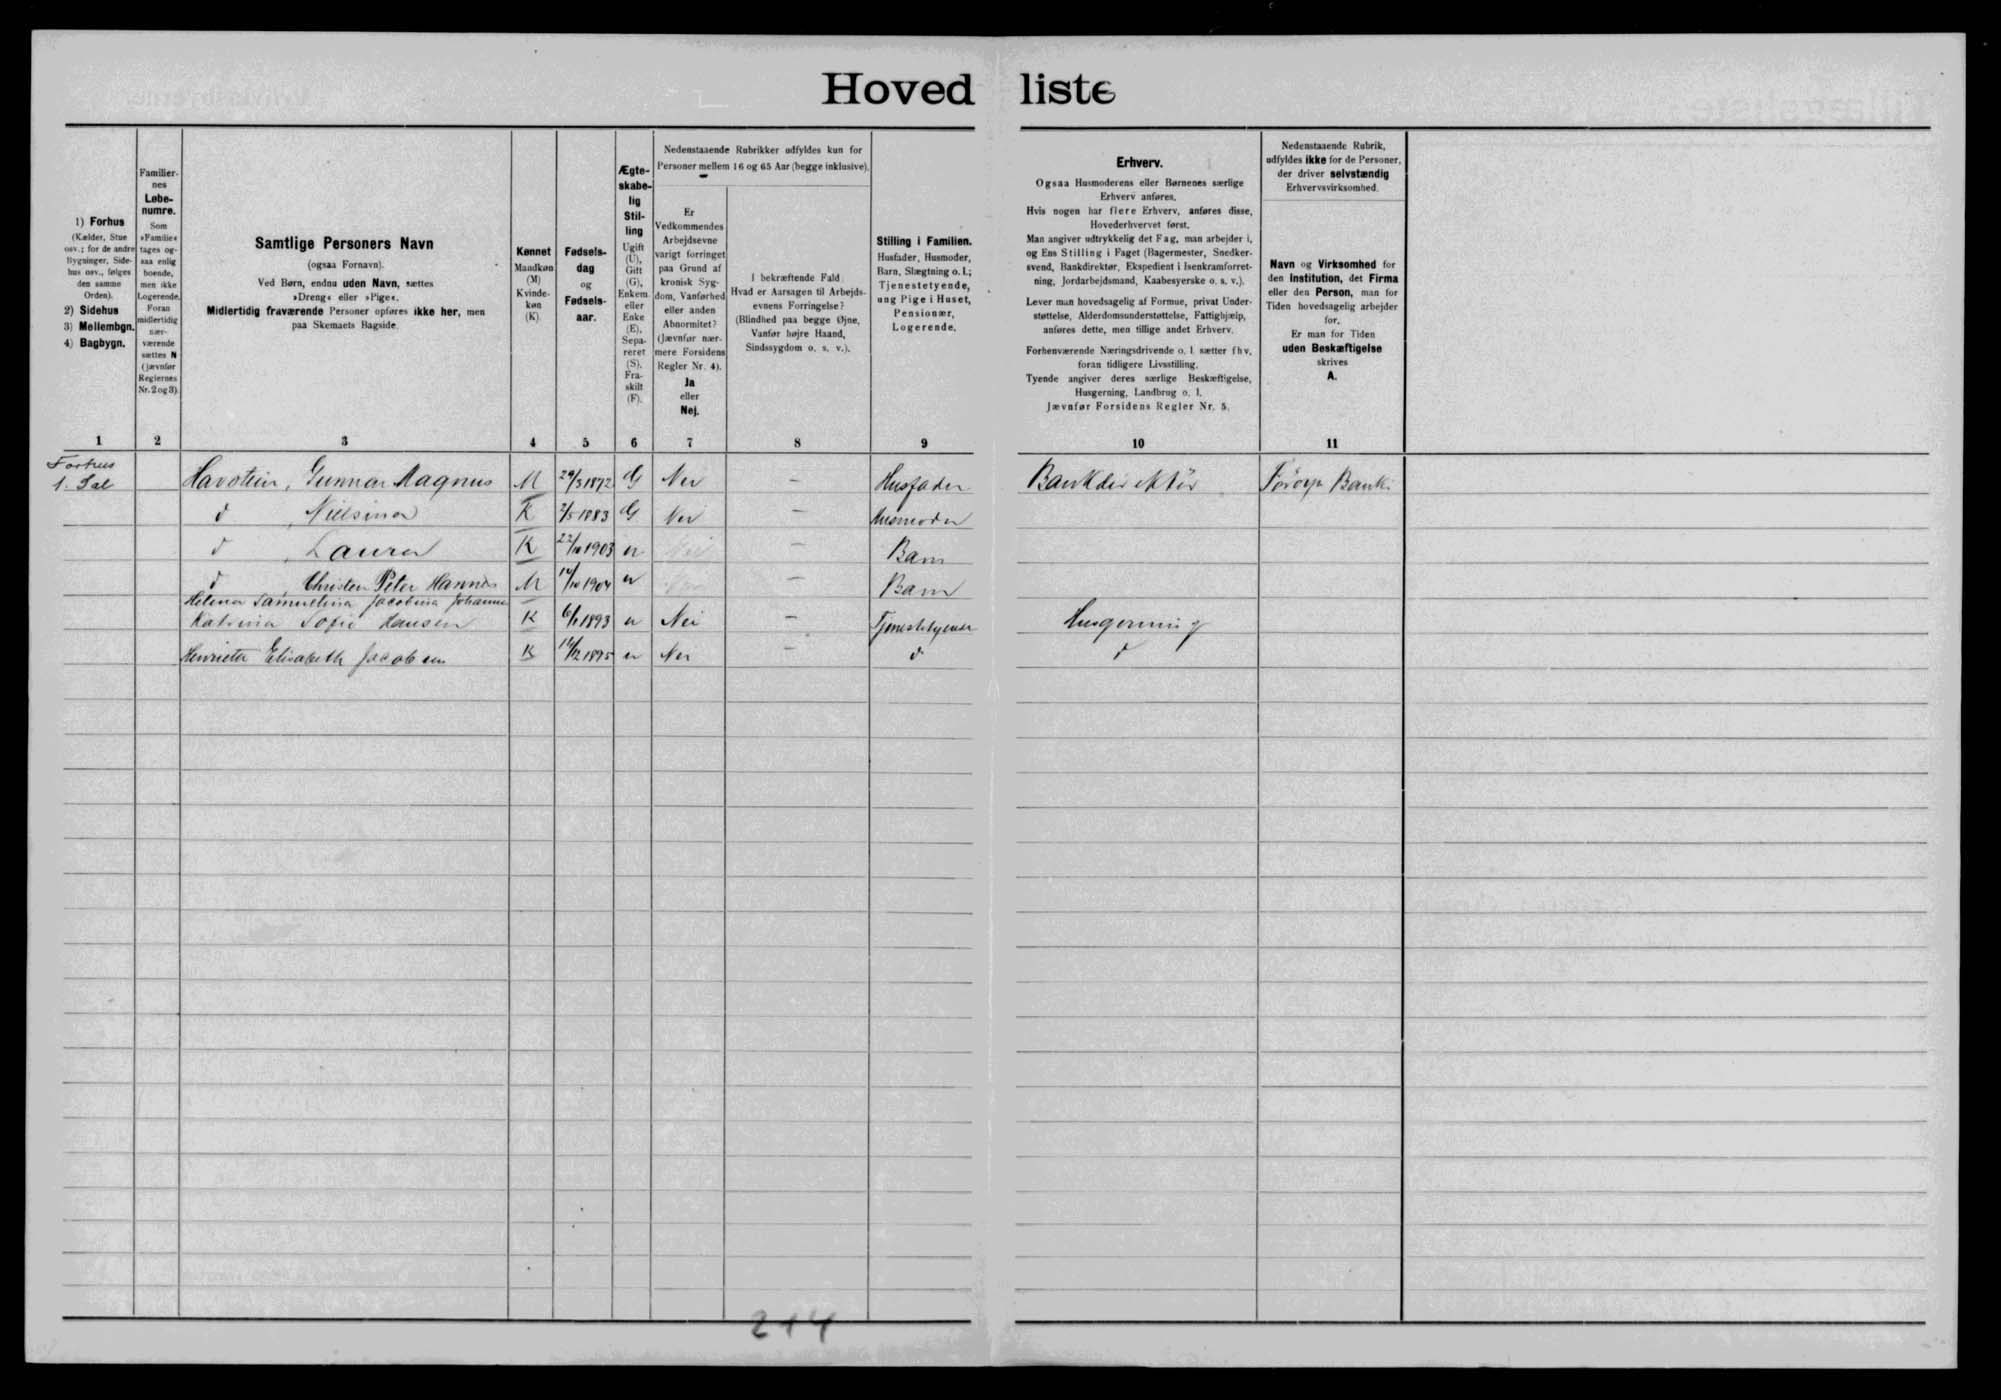 Hovedliste
1) Forhus
(Kælder, Stue
osv.; for de andre
Bygninger, Side-
hus osv., følges
den samme
Orden).
2) Sidehus
3) Mellembgn.
4) Bagbygn.
1
Familier-
nes
Løbe-
numre.
Som
»Familie«
tages og-
saa enlig
boende,
men ikke
Logerende.
Foran
midlertidig
nær-
værende
sættes N
(jævnfør
Reglernes
Nr. 2 og 3).
2
Samtlige Personers Navn
(ogsaa Fornavn).
Ved Børn, endnu uden Navn, sættes
»Dreng« eller »Pige«.
Midlertidig fraværende Personer opføres ikke her, men
paa Skemaets Bagside.
3
Kønnet
Mandkøn
(M)
Kvinde-
køn
(K).
4
Fødsels-
dag
og
Fødsels-
aar.
5
Ægte-
skabe-
lig
Stil-
ling
Ugift
(U),
Gift
(G),
Enkem.
eller
Enke
(E),
Sepa-
reret
(S),
Fra-
skilt
(F).
6
Nedenstaaende Rubrikker udfyldes kun for
Personer mellem 16 og 65 Aar (begge inklusive).
Er
Vedkommendes
Arbejdsevne
varigt forringet
paa Grund af
kronisk Syg-
dom, Vanførhed
eller anden
Abnormitet?
(Jævnfør nær-
mere Forsidens
Regler Nr. 4).
Ja
eller
Nej.
7
I bekræftende Fald:
Hvad er Aarsagen til Arbejds-
evnens Forringelse?
(Blindhed paa begge Øjne,
Vanfør højre Haand,
Sindssygdom o. s. v.).
8
Stilling i Familien.
Husfader, Husmoder,
Barn, Slægtning o. l.;
Tjenestetyende,
ung Pige i Huset,
Pensionær,
Logerende.
9
Erhverv.
Ogsaa Husmoderens eller Børnenes særlige
Erhverv anføres.
Hvis nogen har flere Erhverv, anføres disse,
Hovederhvervet først.
Man angiver udtrykkelig det Fag, man arbejder i,
og Ens Stilling i Faget (Bagermester, Snedker-
svend, Bankdirektør, Ekspedient i Isenkramforret-
ning, Jordarbejdsmand, Kaabesyerske o. s. v.).
Lever man hovedsagelig af Formue, privat Under-
støttelse, Alderdomsunderstøttelse, Fattighjælp,
anføres dette, men tillige andet Erhverv.
Forhenværende Næringsdrivende o. l. sætter fhv.
foran tidligere Livsstilling.
Tyende angiver deres særlige Beskæftigelse,
Husgerning, Landbrug o. l.
Jævnfør Forsidens Regler Nr. 5.
10
Nedenstaaende Rubrik,
udfyldes ikke for de Personer,
der driver selvstændig
Erhvervsvirksomhed.
Navn og Virksomhed for
den Institution, det Firma
eller den Person, man for
Tiden hovedsagelig arbejder
for.
Er man for Tiden
uden Beskæftigelse
skrives
A.
11
Forhus
1. Sal Havstein, Gunnar Magnus M 29/3 1872 G Nei — Husfader Bankdirektör Föroya Banki
d Nielsina K 2/5 1883 G Nei — Husmoder
d Laura K 22/10 1903 u Nei — Barn
d Christen Peter Hannes M 14/10 1904 u — Barn
Helena Samuelina Jacobina Johanne
Katrina Sofie Hansen K 6/1 1893 u Nei — Tjenestetyende Husgerning
Henrietta Elisabeth Jacobsen K 14/12 1895 u Nei — d d
214